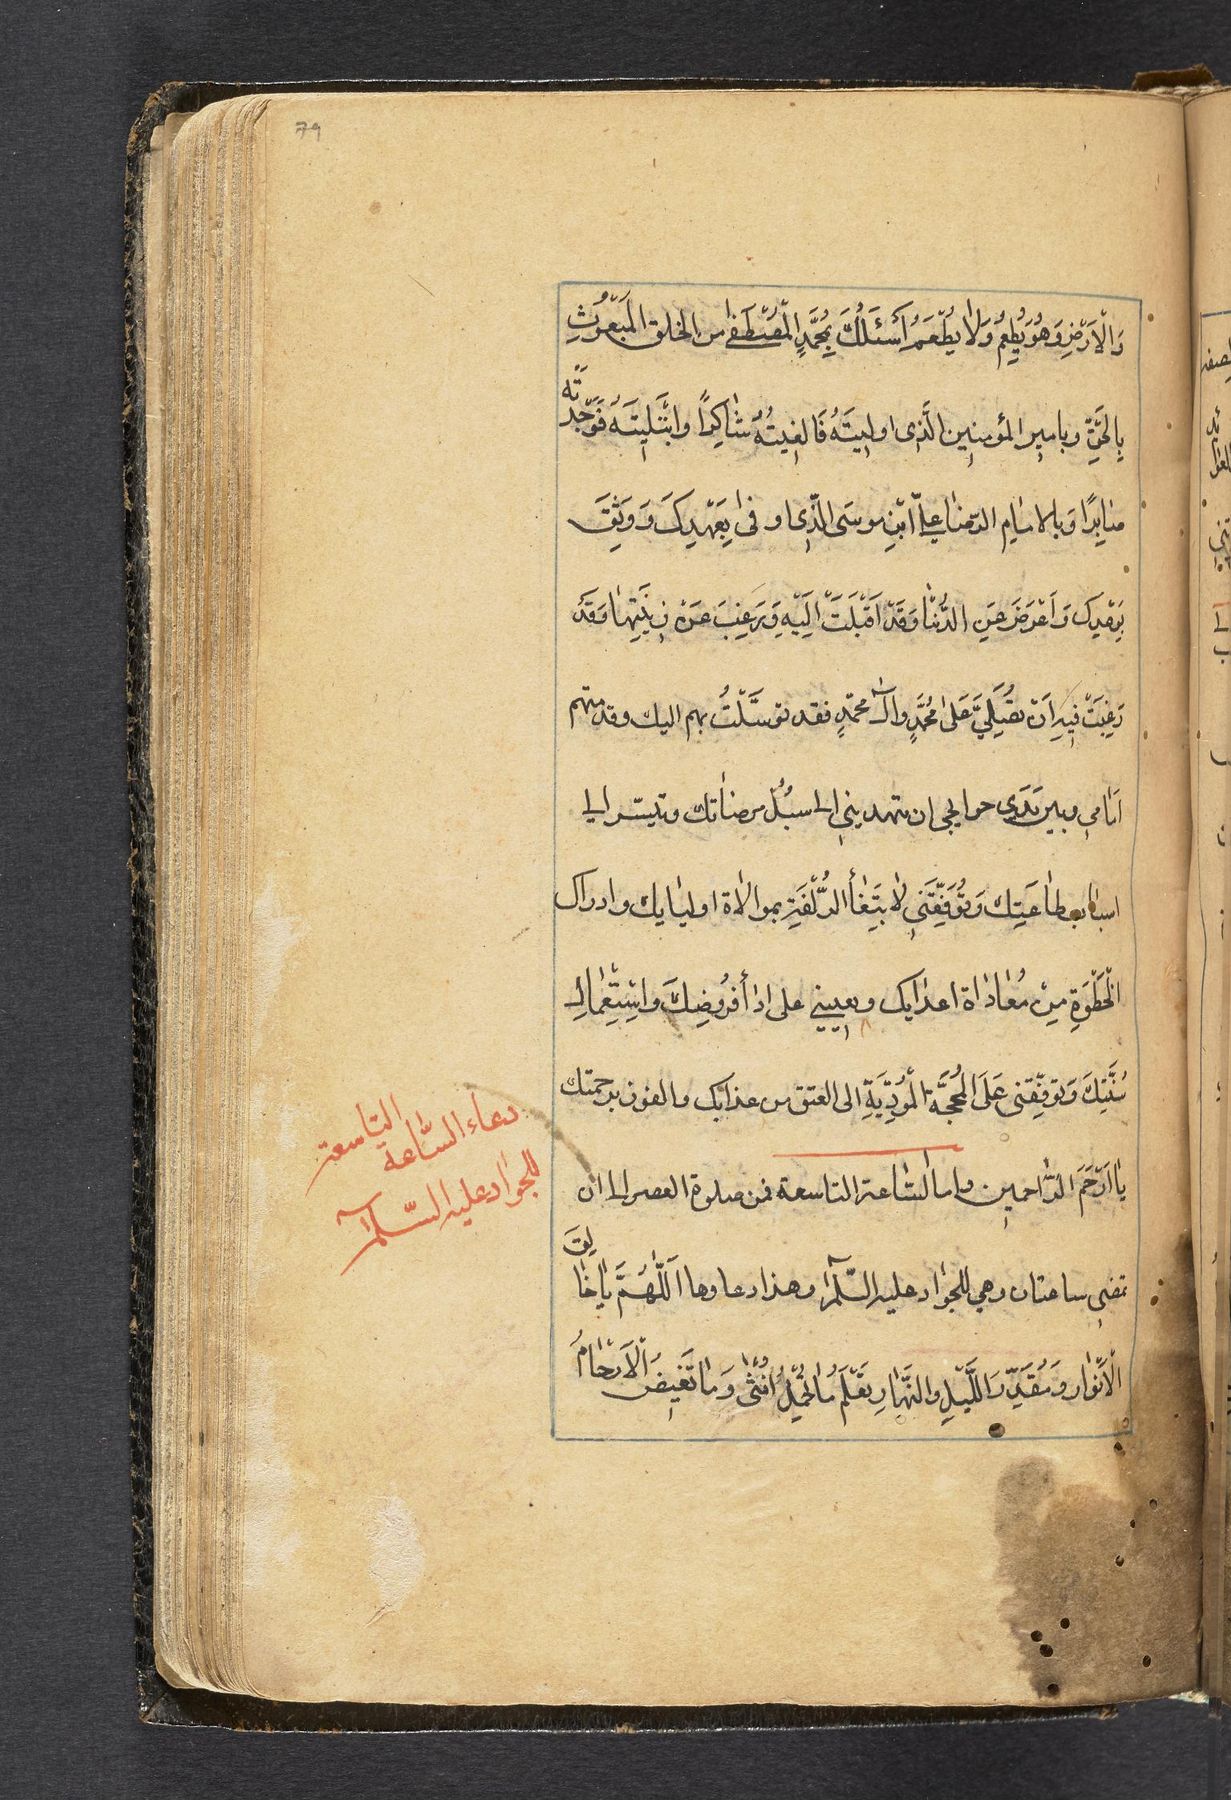 79
وَالْاَرْضِ وَهُوَ يُطْعِمُ وَلَا يُطْعَمُ اَسْئَلُكَ بِمُحَمَّدٍ الْمُصْطَفٰى من الخلق المَبْعُوثِ
بِالْحَقِّ وبامير المؤمنين الَّذِى اوليتَهُ فَالفيتُهُ شَاكِرًا وابْتَلَيتَهُ فَوَجَدْتَه
صَابِرًا وَبالامام الرّضا عليّ ابْنِ موسَى الَّذِى اوفىٰ بِعَهْدِكَ وَوَثِقَ
بِوَعْدِكَ وَاَعْرَضَ عَنِ الدُّنْيا وَقَدْ اَقْبَلَتْ اِلَيْهِ وَرَغِبَ عَنْ زِينَتِهٰا وَقَدْ
رَغِبَتْ فِيهِ اَنْ تصَلِّيَ عَلىٰ مُحَمَّدٍ وآل محمّدٍ فقد توسَّلْتُ بهم اليك وقدمتهم
اَمامى وبين يَدَى حوايجى ان تهدينى الى سبُلِ مرضاتك وتيسّر لى
اسباب طاعَتِك وَتُوَفِّقَنى لِابتِغٰاءِ الزُّلْفَةِ بموالاة اوليايك وادراك
الْحُظْوَةِ مِنْ مُعٰادٰاة اعدايك وتعيننى على اداءِ فُرُوضِكَ وَاسْتِعْمالِ
سُنَّتِكَ وَتوفّقنى عَلَى الْمَحَجَّةِ الْمُؤَدِّيَةِ الى العتق من عذابك والفوز برحمتك
يٰا اَرْحَمَ الرّٰاحمين واما السّٰاعة التاسعة فمن صلوة العصر الى ان
تمضى ساعتان وهى للجوٰاد عليه السّلٰم وهذا دعاوها اَللّٰهُمَّ يٰا خٰالِقَ
الْاَنْوٰار وَمُقَدِّرَ اللَّيْلِ والنَّهٰارِ تَعْلَمُ مٰا تَحْمِلُ كُلُّ اُنْثٰى وَمٰا تَغيضُ الْاَرْحٰامُ
دعاء السّاعة التاسعة
للجواد عليه السّلام